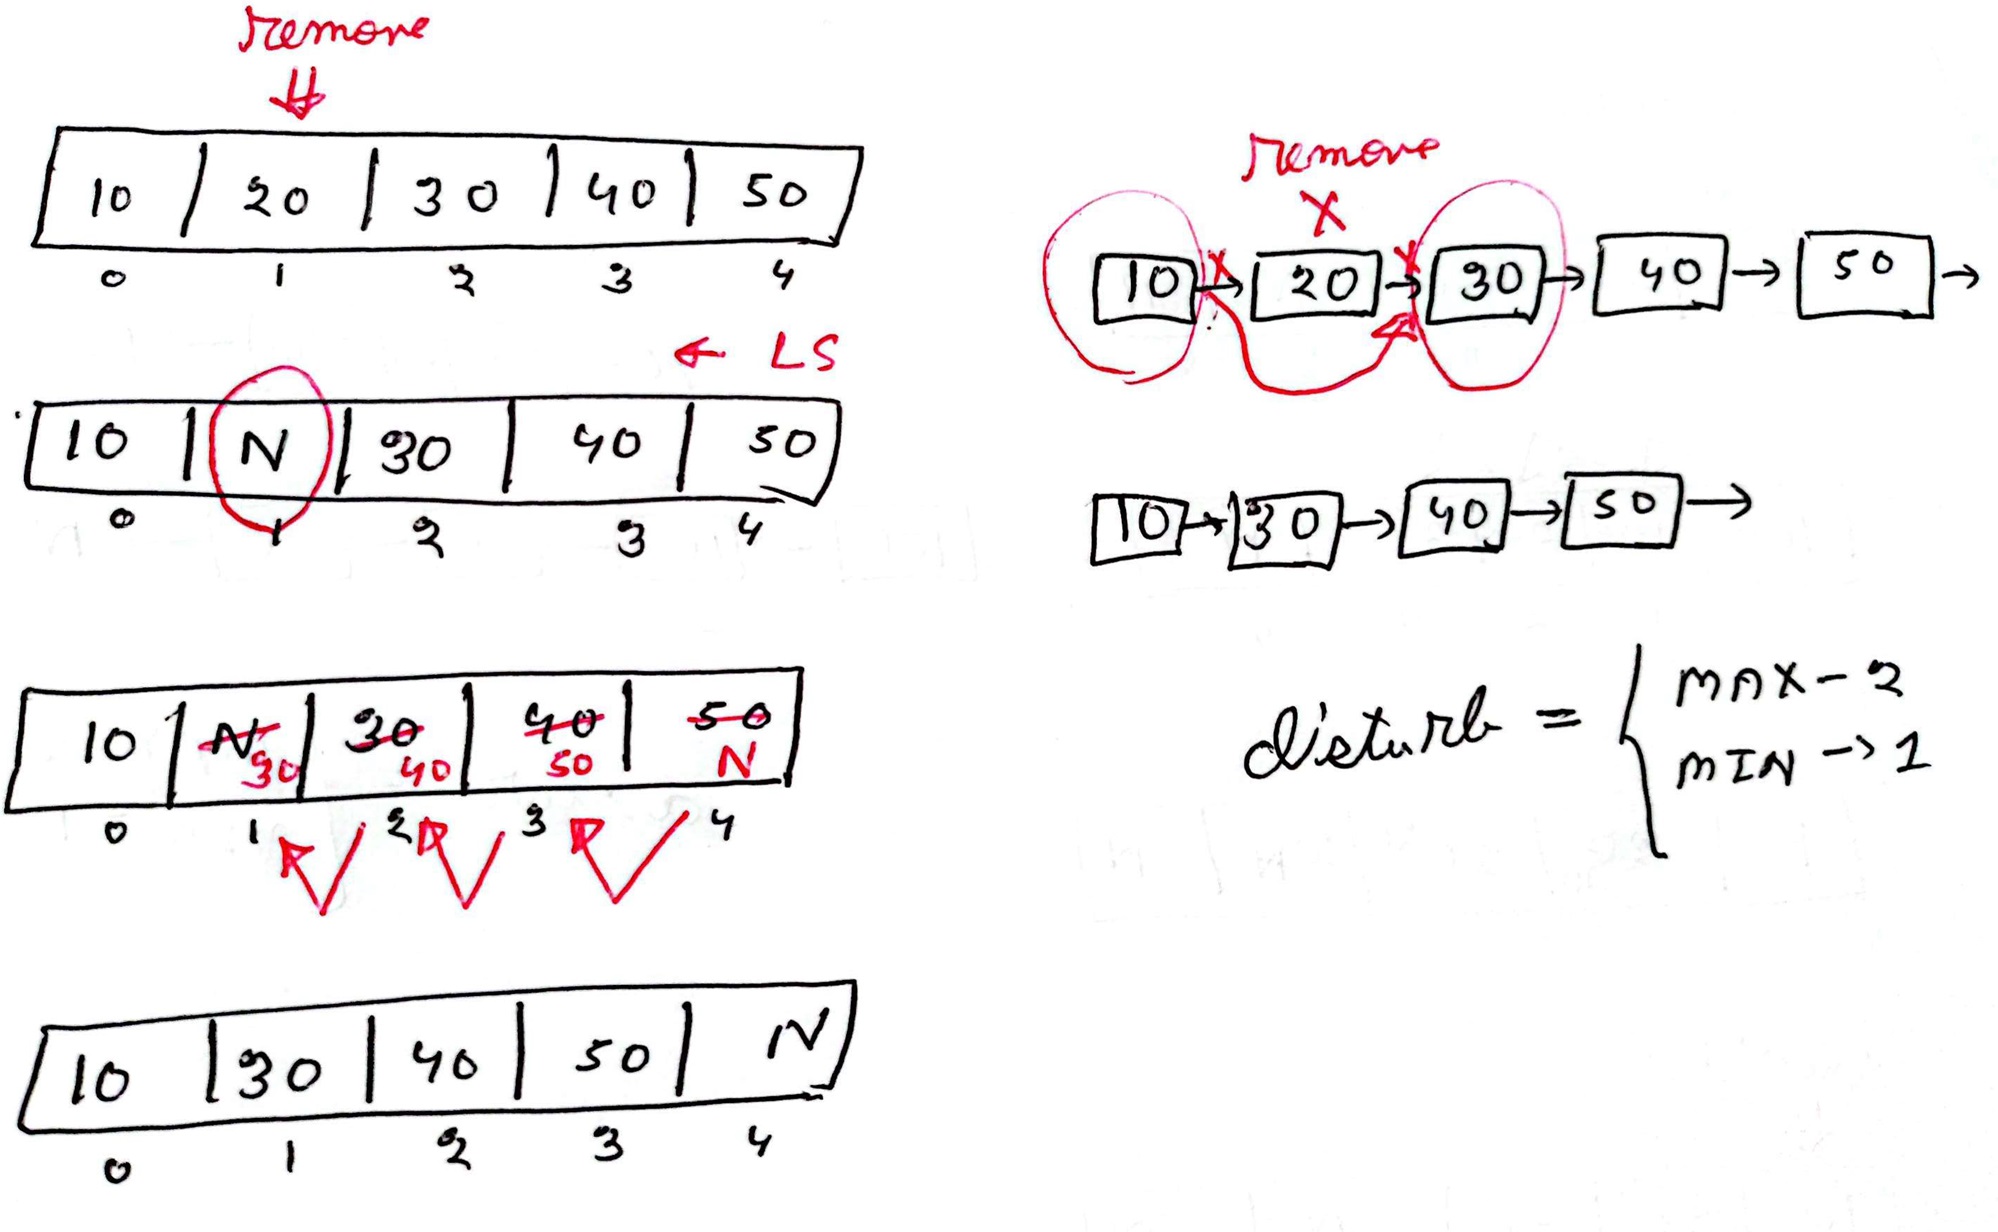 remove
10 20 30 40 50
0 1 2 3 4
← LS
10 N 30 40 50
0 1 2 3 4
10 N 30 40 50
30 40 50 N
0 1 2 3 4
10 30 40 50 N
0 1 2 3 4
remove
X
X X
10 → 20 → 30 → 40 → 50 →
10 → 30 → 40 → 50 →
disturb = { MAX - 2
MIN → 1